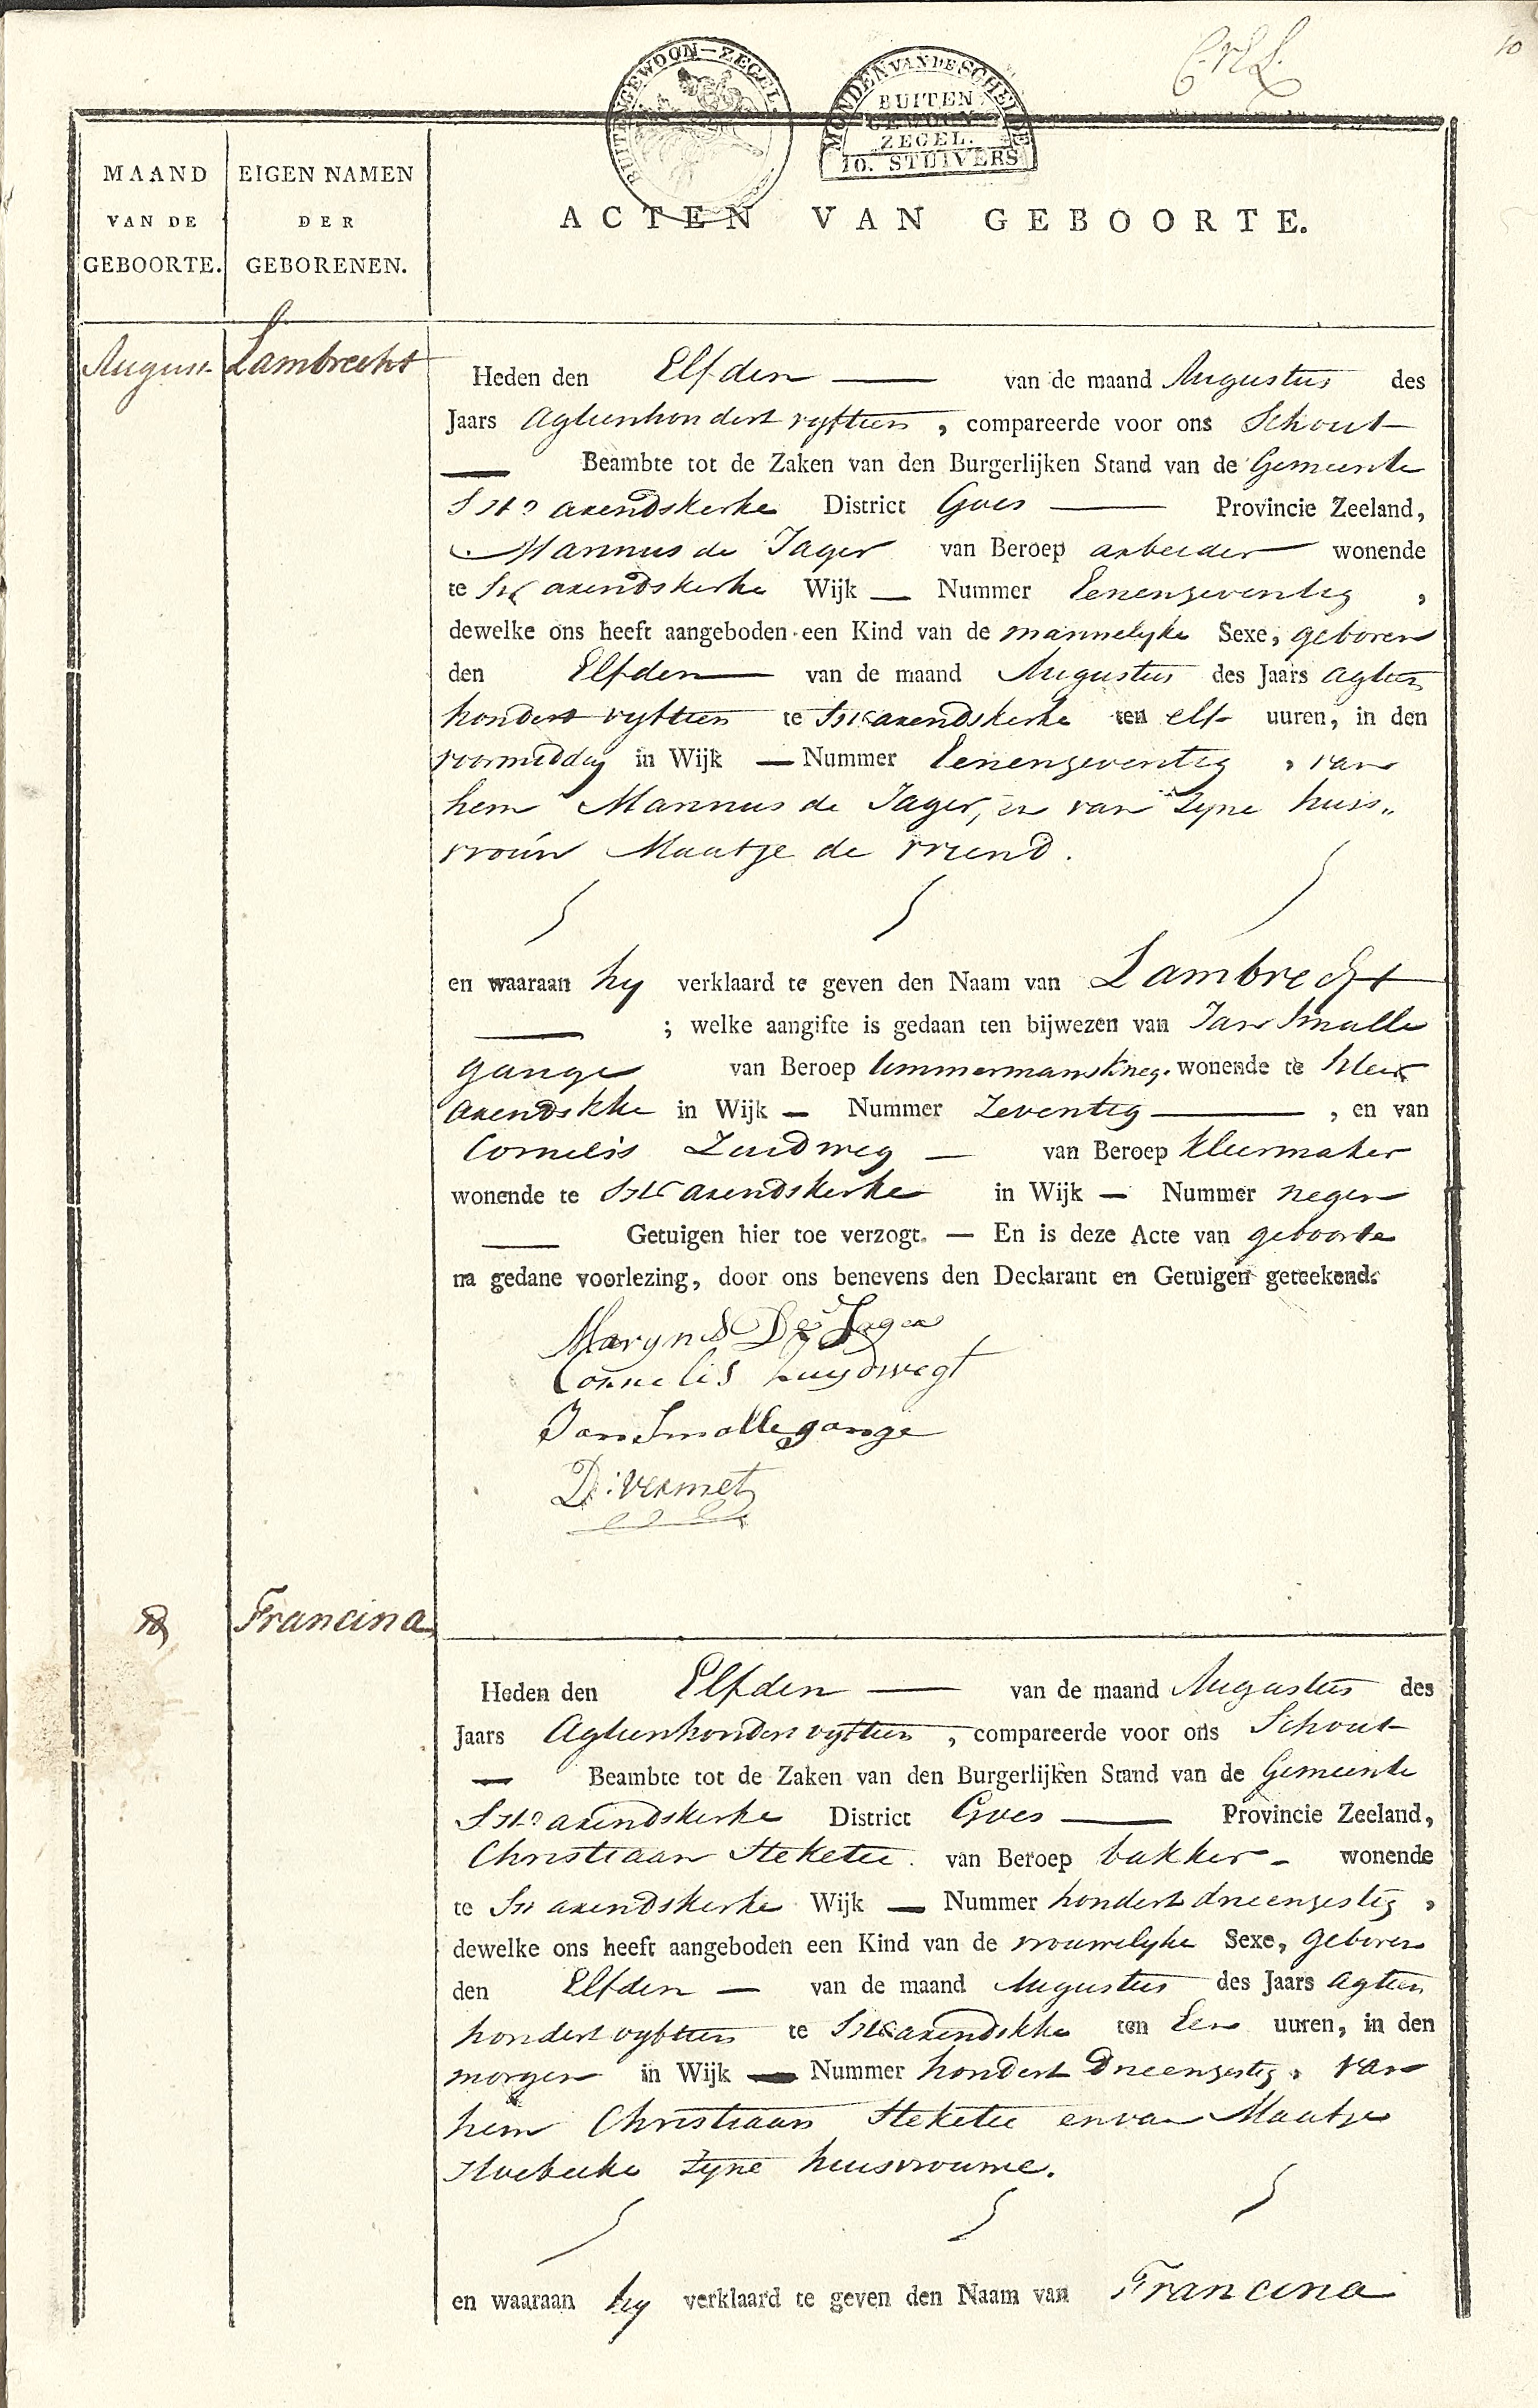 C.v.E.L.
10
BUITENGEWOON-ZEGEL.
MONDEN VAN DE SCHELDE
BUITEN
GEWOON
ZEGEL.
10. STUIVERS
MAAND
VAN DE
GEBOORTE.
EIGEN NAMEN
DER
GEBORENEN.
ACTEN VAN GEBOORTE.
August Lambrecht
Heden den Elfden van de maand Augustus des
Jaars agtienhondert vyftien, compareerde voor ons Schout
Beambte tot de Zaken van den Burgerlijken Stand van de Gemeente
arendskerke District Goes Provincie Zeeland,
Marinus de Jager van Beroep arbeider wonende
te arendskerke Wijk — Nummer Eenenzeventig,
dewelke ons heeft aangeboden een Kind van de mannelyke Sexe, geboren
den Elfden van de maand Augustus des Jaars agtien
hondert vyftien te arendskerke ten elf uuren, in den
voormiddag in Wijk — Nummer Eenenzeventig, van
hem Marinus de Jager, en van zyne huis„
vrouw Maatje de Vriend.
en waaraan hy verklaard te geven den Naam van Lambrecht
; welke aangifte is gedaan ten bijwezen van Jan Smalle
gange van Beroep timmermanskneg. wonende te
arendskke in Wijk — Nummer Zeventig, en van
Cornelis Zuidweg — van Beroep kleermaker
wonende te arendskerke in Wijk — Nummer negen
Getuigen hier toe verzogt. — En is deze Acte van geboorte
na gedane voorlezing, door ons benevens den Declarant en Getuigen geteekend.
Marynus De Jager
Cornelis Zuydwegt
Jan Smallegange
D: Vermet
Francina
Heden den Elfden van de maand Augustus des
Jaars Agtienhondert vyftien, compareerde voor ons Schout
— Beambte tot de Zaken van den Burgerlijken Stand van de Gemeente
arendskerke District Goes Provincie Zeeland,
Christiaan Steketee van Beroep bakker - wonende
te arendskerke Wijk — Nummer hondert drieenzestig,
dewelke ons heeft aangeboden een Kind van de vrouwelyke Sexe, geboren
den Elfden — van de maand Augustus des Jaars agtien
hondert vyftien te arendskke ten Een uuren, in den
morgen in Wijk — Nummer hondert Drieenzestig, van
hem Christiaan Steketee en van Maatje
Hoebeeke zyne huisvrouwe.
en waaraan hy verklaard te geven den Naam van Francina